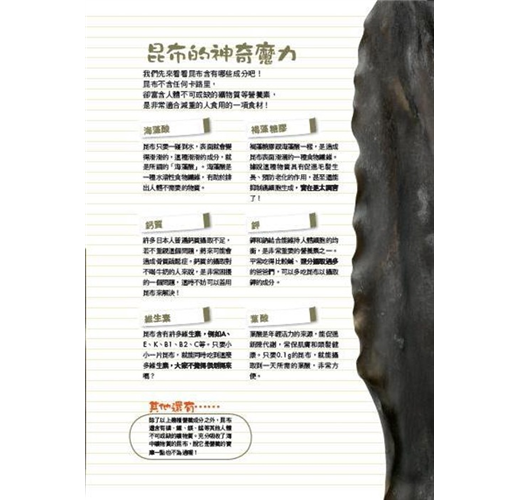 昆布的神奇魔力
我們先來看看昆布含有哪些成分吧！
昆布不含任何卡路里，
卻富含人體不可或缺的礦物質等營養素，
是非常適合減重的人食用的一項食材！
海藻酸
昆布只要一碰到水，表面就會變
得滑滑的，這種滑滑的成分，就
是所謂的「海藻酸」。海藻酸是
一種水溶性食物纖維，有助於排
出人體不需要的物質。
褐藻糖膠
褐藻糖膠跟海藻酸一樣，是造成
昆布表面滑滑的一種食物纖維。
據說這種物質具有促進毛髮生
長、預防老化的作用，甚至還能
抑制癌細胞生成，實在是太厲害
了！
鈣質
許多日本人普遍鈣質攝取不足。
若不重視這個問題，將來可能會
造成骨質疏鬆症。鈣質的攝取對
不喝牛奶的人來說，是非常困擾
的一個問題，這時不妨可以善用
昆布來解決！
鉀
鉀和鈉結合能維持人體細胞的均
衡，是非常重要的營養素之一。
平常吃得比較鹹、鹽分攝取過多
的爸爸們，可以多吃昆布以攝取
鉀的成分。
維生素
昆布含有許多維生素，例如A、
E、K、B1、B2、C等。只要小
小一片昆布，就能同時吃到這麼
多維生素，大家不覺得很划得來
嗎？
葉酸
葉酸是年輕活力的來源，能促進
新陳代謝，常保肌膚和頭髮健
康。只要0.1g的昆布，就能攝取
到一天所需的葉酸，非常方
便。
其他還有……
除了以上幾種營養成分之外，昆布
還含有磷、鐵、鎂、錳等其他人體
不可或缺的礦物質。充分吸收了海
中礦物質的昆布，說它是營養的寶
庫一點也不為過喔！